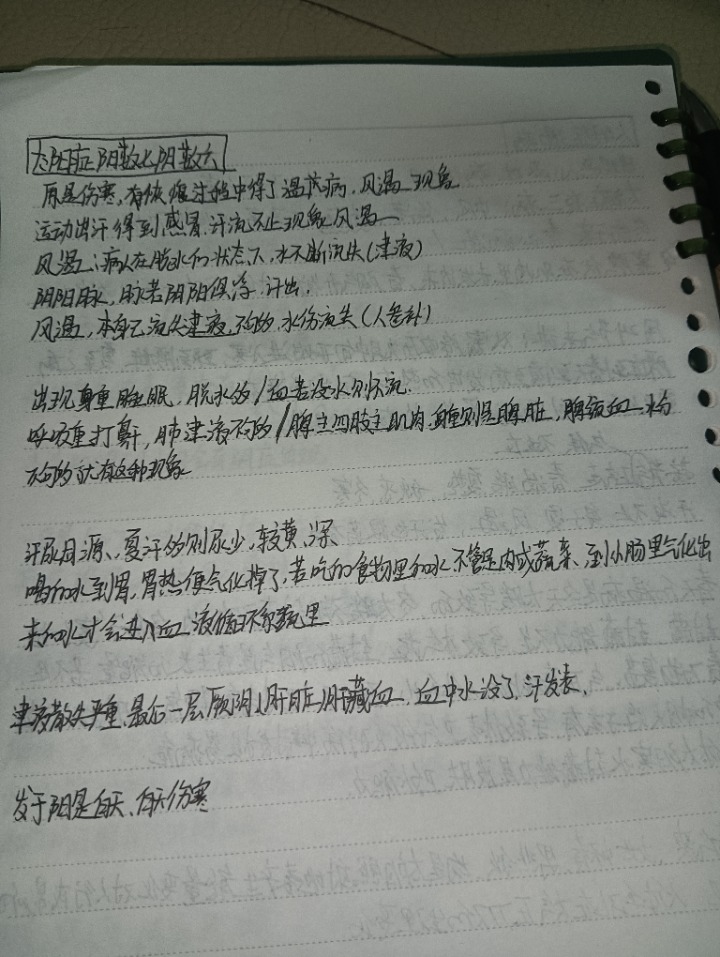 太阳症阳数七阴数六
原是伤寒,有恢复过程中得了温热病,风温现象
运动出汗得到感冒,汗流不止现象风温
风温:病人在脱水的状态下,水不断流失(津液)
阴阳脉,脉若阴阳俱浮,汗出,
风温,本身已流失津液,不够的,水份流失(人参补)
出现身重睡眠,脱水的/血若没水则不流
呼吸重打鼾,肺津液不够的/脾主四肢主肌肉,身重则是脾脏,脾藏血水份
不够的就有这种现象
汗尿同源,夏汗多则尿少,较黄,深
喝的水到胃,胃热便气化掉了,若吃的食物里的水不管是肉或蔬菜、到小肠里气化出
来的水才会进入血液循环系统里
津液散失严重,最后一层厥阴(肝脏)肝藏血,血中水没了,汗发表,
发于阳是白天,白天伤寒